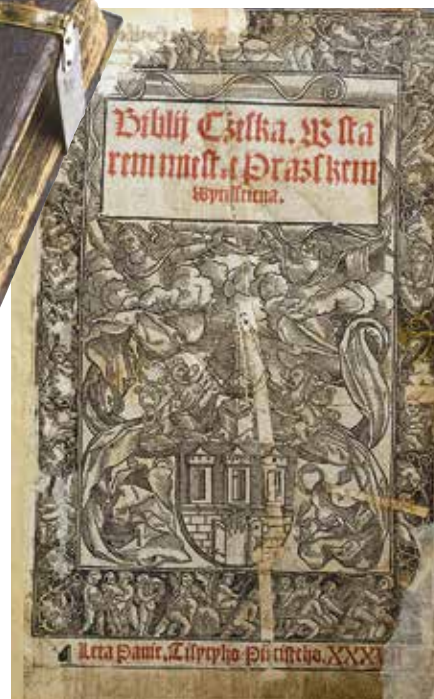 Biblij Cżeſka. W ſta
rem mieſtie Prazſkem
Wytiſſtena.
Leta Panie. Tiſycyho Pietiſteho. XXX